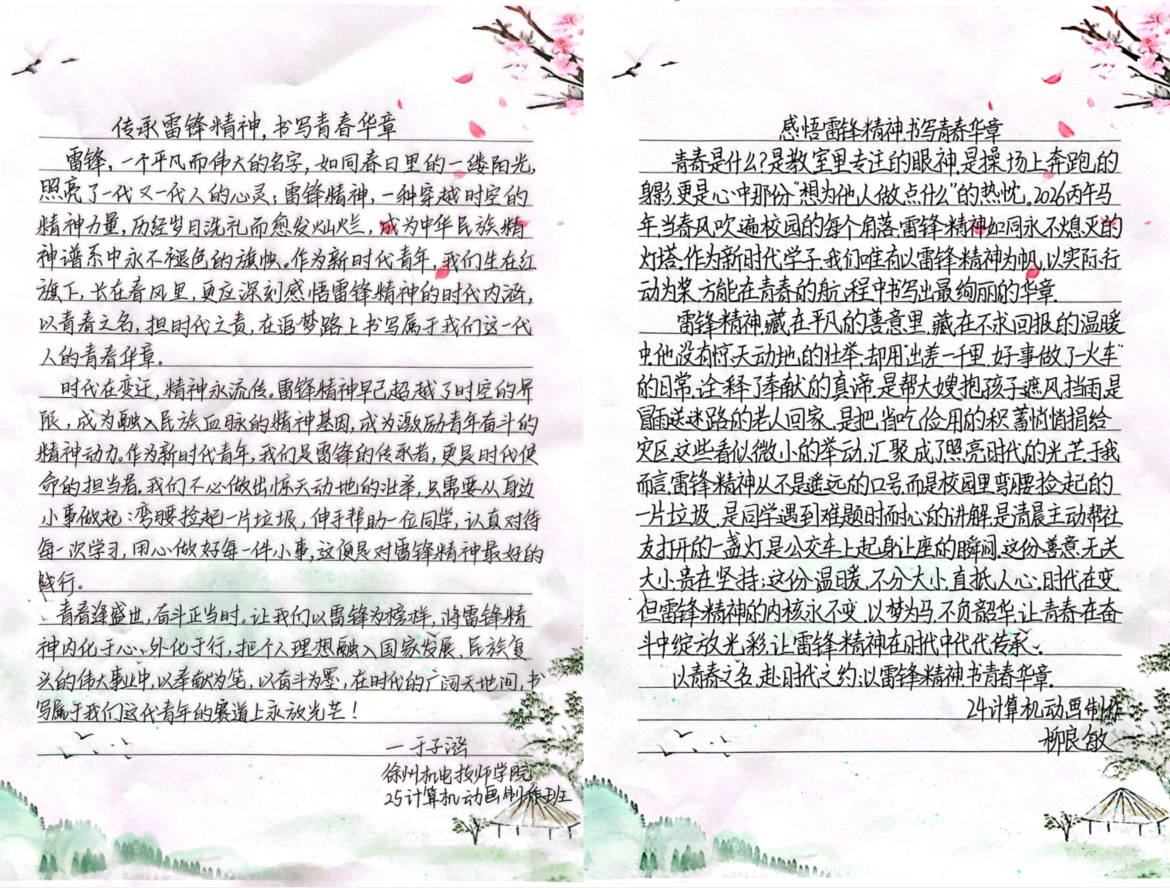 传承雷锋精神,书写青春华章
雷锋,一个平凡而伟大的名字,如同春日里的一缕阳光,
照亮了一代又一代人的心灵;雷锋精神,一种穿越时空的
精神力量,历经岁月洗礼而愈发灿烂,成为中华民族精
神谱系中永不褪色的旗帜。作为新时代青年,我们生在红
旗下,长在春风里,更应深刻感悟雷锋精神的时代内涵,
以青春之名,担时代之责,在追梦路上书写属于我们这一代
人的青春华章。
时代在变迁,精神永流传。雷锋精神早已超越了时空的界
限,成为融入民族血脉的精神基因,成为激励青年奋斗的
精神动力。作为新时代青年,我们是雷锋的传承者,更是时代使
命的担当者。我们不必做出惊天动地的壮举,只需要从身边
小事做起:弯腰捡起一片垃圾,伸手帮助一位同学,认真对待
每一次学习,用心做好每一件小事,这便是对雷锋精神最好的
践行。
青春逢盛世,奋斗正当时。让我们以雷锋为榜样,将雷锋精
神内化于心、外化于行,把个人理想融入国家发展、民族复
兴的伟大事业中,以奉献为笔,以奋斗为墨,在时代的广阔天地间,书
写属于我们这代青年的赛道上永放光芒!
一于子涵
徐州机电技师学院
25计算机动画制作班
感悟雷锋精神书写青春华章
青春是什么?是教室里专注的眼神,是操场上奔跑的
身影,更是心中那份“想为他人做点什么”的热忱。2026丙午马
年,当春风吹遍校园的每个角落,雷锋精神如同永不熄灭的
灯塔.作为新时代学子,我们唯有以雷锋精神为帆,以实际行
动为桨,方能在青春的航程中书写出最绚丽的华章.
雷锋精神,藏在平凡的善意里,藏在不求回报的温暖
中.他没有惊天动地的壮举,却用“出差一千里,好事做了一火车”
的日常,诠释了奉献的真谛.是帮大嫂抱孩子遮风挡雨,是
冒雨送迷路的老人回家,是把省吃俭用的积蓄悄悄捐给
灾区.这些看似微小的举动,汇聚成了照亮时代的光芒.于我
而言,雷锋精神从不是遥远的口号,而是校园里弯腰捡起的
一片垃圾,是同学遇到难题时耐心的讲解,是清晨主动帮社
友打开的一盏灯,是公交车上起身让座的瞬间.这份善意,无关
大小,贵在坚持;这份温暖,不分大小,直抵人心.时代在变,
但雷锋精神的内核永不变.以梦为马,不负韶华,让青春在奋
斗中绽放光彩,让雷锋精神在时代中代代传承.
以青春之名,赴时代之约;以雷锋精神,书青春华章.
24计算机动画制作
柳良敏